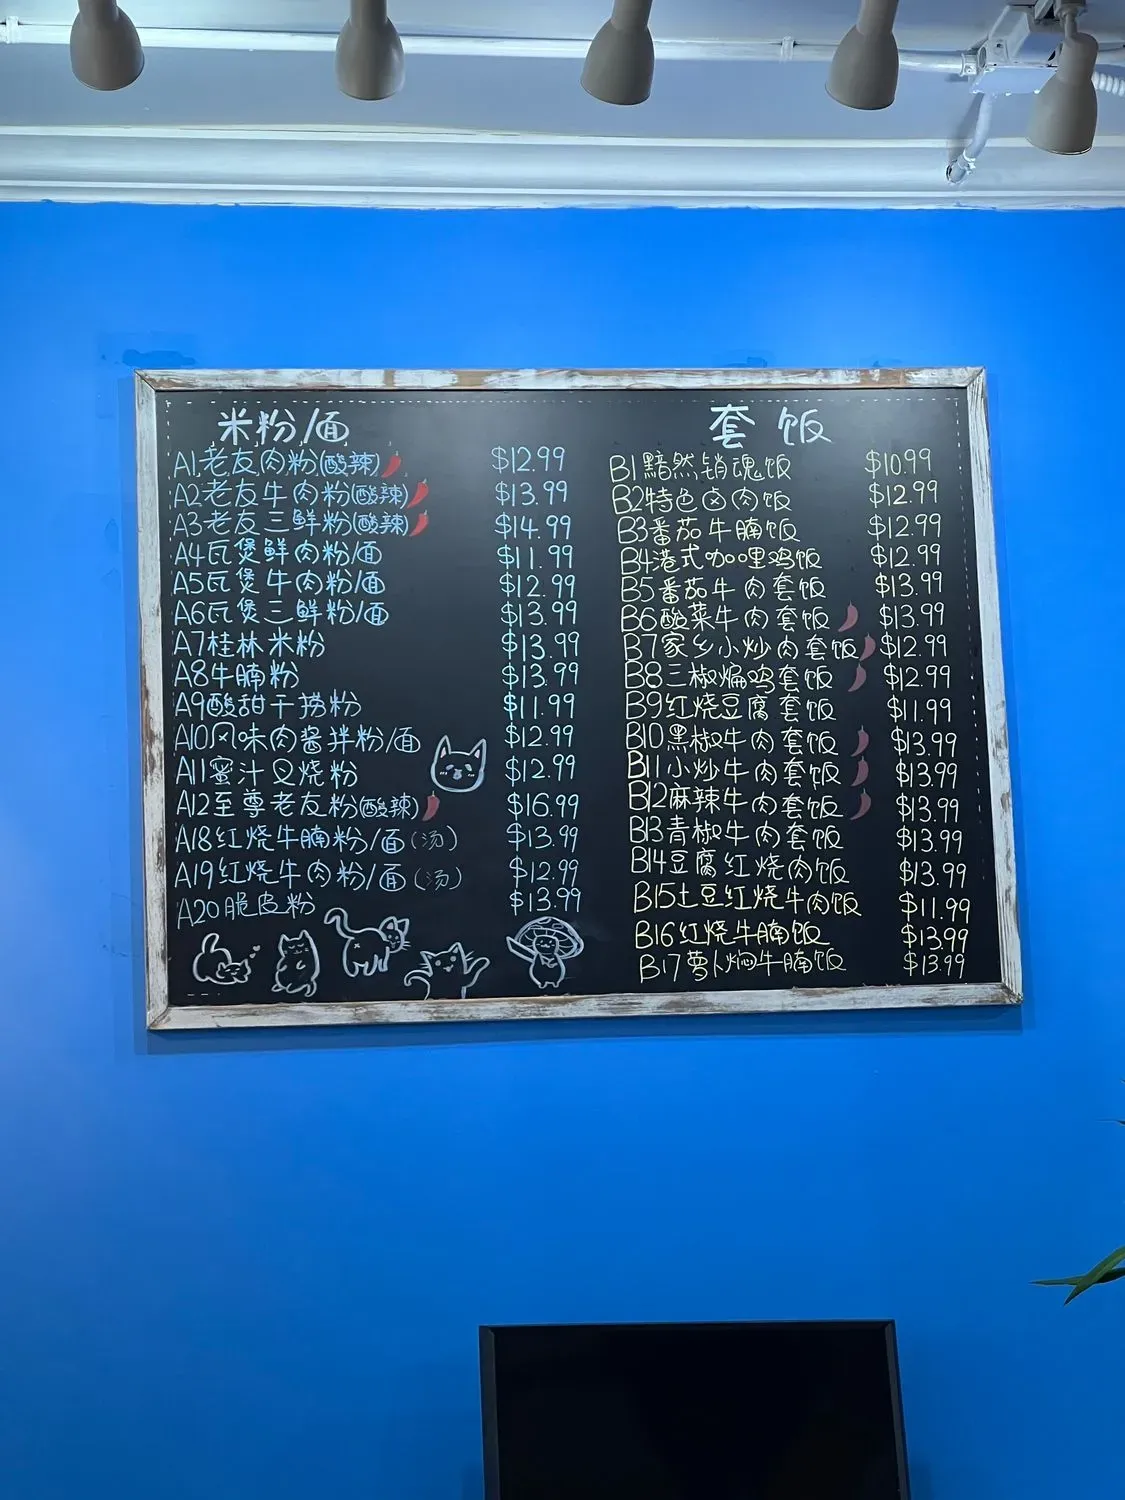 米粉/面
A1.老友肉粉(酸辣) $12.99
A2老友牛肉粉(酸辣) $13.99
A3老友三鲜粉(酸辣) $14.99
A4瓦煲鲜肉粉/面 $11.99
A5瓦煲牛肉粉/面 $12.99
A6瓦煲三鲜粉/面 $13.99
A7桂林米粉 $13.99
A8牛腩粉 $13.99
A9酸甜干捞粉 $11.99
A10风味肉酱拌粉/面 $12.99
A11蜜汁叉烧粉 $12.99
A12至尊老友粉(酸辣) $16.99
A18红烧牛腩粉/面(汤) $13.99
A19红烧牛肉粉/面(汤) $12.99
A20脆皮粉 $13.99
套饭
B1黯然销魂饭 $10.99
B2特色卤肉饭 $12.99
B3番茄牛腩饭 $12.99
B4港式咖哩鸡饭 $12.99
B5番茄牛肉套饭 $13.99
B6酸菜牛肉套饭 $13.99
B7家乡小炒肉套饭 $12.99
B8三椒煸鸡套饭 $12.99
B9红烧豆腐套饭 $11.99
B10黑椒牛肉套饭 $13.99
B11小炒牛肉套饭 $13.99
B12麻辣牛肉套饭 $13.99
B13青椒牛肉套饭 $13.99
B14豆腐红烧肉饭 $13.99
B15土豆红烧牛肉饭 $11.99
B16红烧牛腩饭 $13.99
B17萝卜焖牛腩饭 $13.99